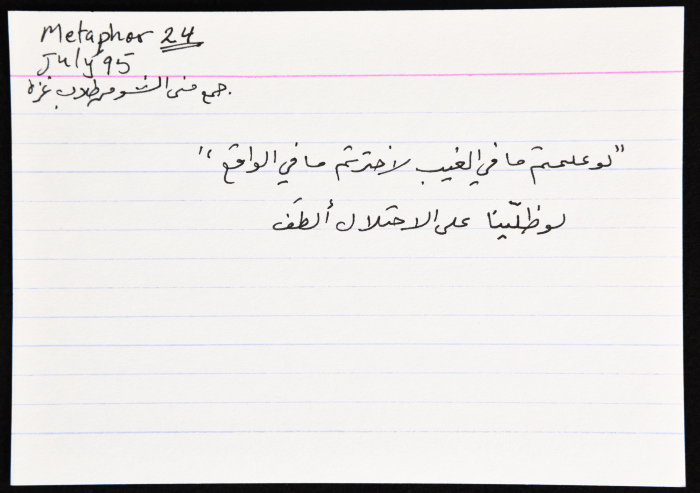 Metaphor 24
July '95
جمع منى الشوا من طلاب غزة.
"لو علمتم ما في الغيب لاخترتم ما في الواقع"
لو ظلّينا على الاحتلال ألطَف